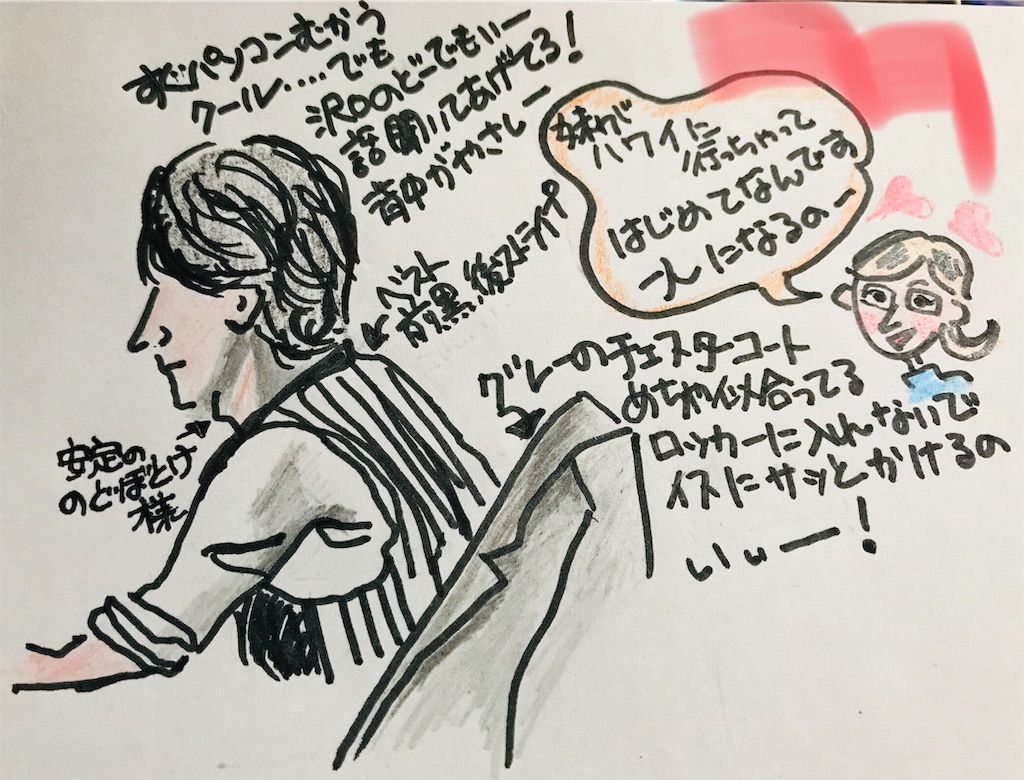 すぐパソコンむかう
クール....でも
沢口のどーでもいー
話聞いてあげてる！
背中がやさしー
妹が
ハワイに
行っちゃって
はじめてなんです
一人になるのー
ベスト
前黒、後ストライプ
グレーのチェスターコート
めちゃ似合ってる
ロッカーに入れないで
イスにサッとかけるの
いぃー！
安定の
のどぼとけ
様